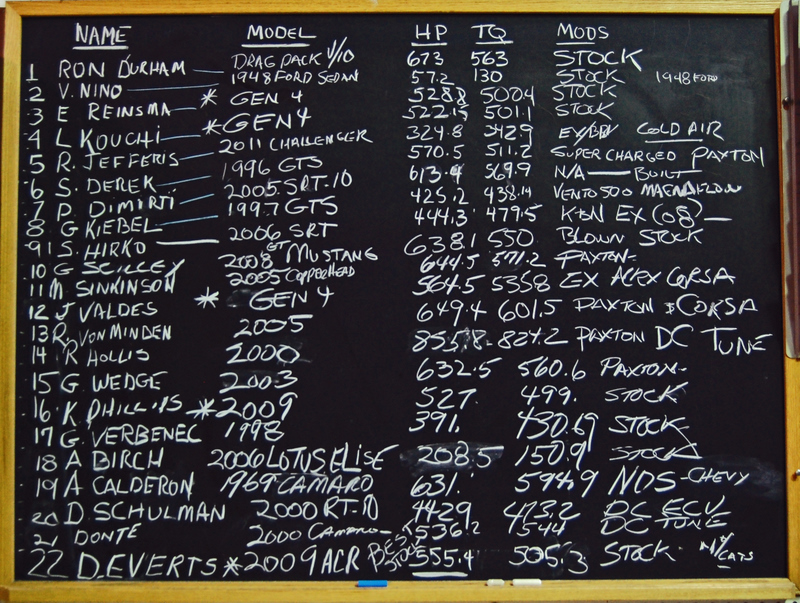 NAME MODEL HP TQ MODS
1 RON DURHAM DRAG PACK V/10 673 563 STOCK
2 V. NINO 1948 FORD SEDAN 57.2 130 STOCK 1948 FORD
3 E REINSMA * GEN 4 528.8 500.4 STOCK
4 L KOUCHI * GEN 4 501.1 STOCK
5 R. JEFFERIS 2011 CHALLENGER 324.8 342.9 COLD AIR
6 S. DEREK 1996 GTS 570.5 511.2 SUPER CHARGED PAXTON
7 D DIMIRTI 2005 SRT-10 613.4 569.9 N/A BUILT
8 G KIEBEL 1997 GTS 425.2 438.14 VENTO 500 MAGNAFLOW
9 S. HIRKO 2006 SRT 444.3 479.5 K&N EX (08)
10 G SCILLEY 2008 GT MUSTANG 638.1 550 BLOWN STOCK
11 M. SINKINSON 2005 COPPERHEAD 644.5 571.2 PAXTON
12 J VALDES * GEN 4 564.5 535.8 EX ALEX CORSA
13 R. VON MINDEN 2005 649.4 601.5 PAXTON & CORSA
14 R HOLLIS 2000 855.8 824.2 PAXTON DC TUNE
15 G WEDGE 2003 632.5 560.6 PAXTON
16 K PHILLIPS * 2009 527. 499. STOCK
17 G. VERBENEC 1998 391. 430.69 STOCK
18 A BIRCH 2006 LOTUS ELISE 208.5 150.9 STOCK
19 A CALDERON 1969 CAMARO 631. 594.9 NOS-CHEVY
20 D SCHULMAN 2000 RT-10 442.9 473.2 DC ECU
21 DONTE 2000 CAMARO 536.2 544 DC TUNE
22 D. EVERTS * 2009 ACR BEST STOCK 555.4 505.3 STOCK CATS